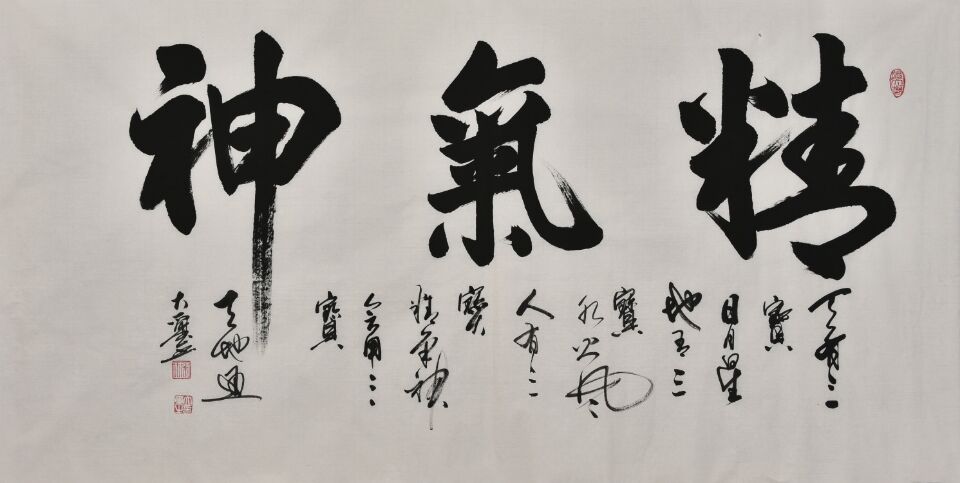 精氣神
天有三
寶
日月星
地有三
寶
水火風
人有三
寶
精氣神
会用三
寶
天地通